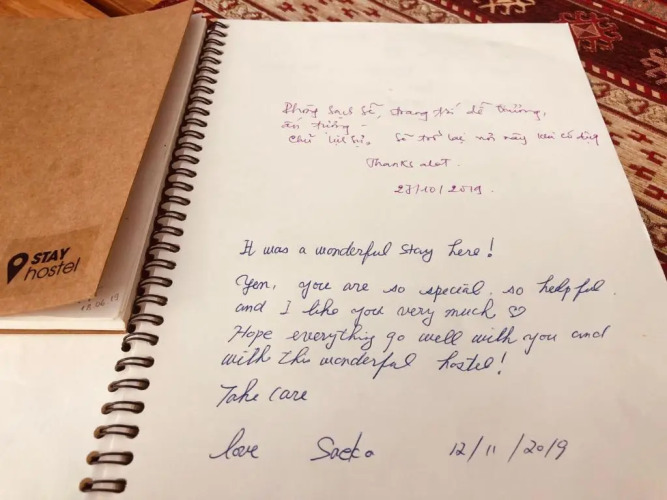 STAY
hostel
Phòng sạch sẽ, trang trí dễ thương,
ấn tượng.
Chủ lịch sự. Sẽ trở lại nơi này khi có dịp
Thanks alot.
23/10/2019.
It was a wonderful stay here!
Yen, you are so special, so helpful
and I like you very much ♡
Hope everything go well with you and
with this wonderful hostel!
Take care
love Saeko 12/11/2019